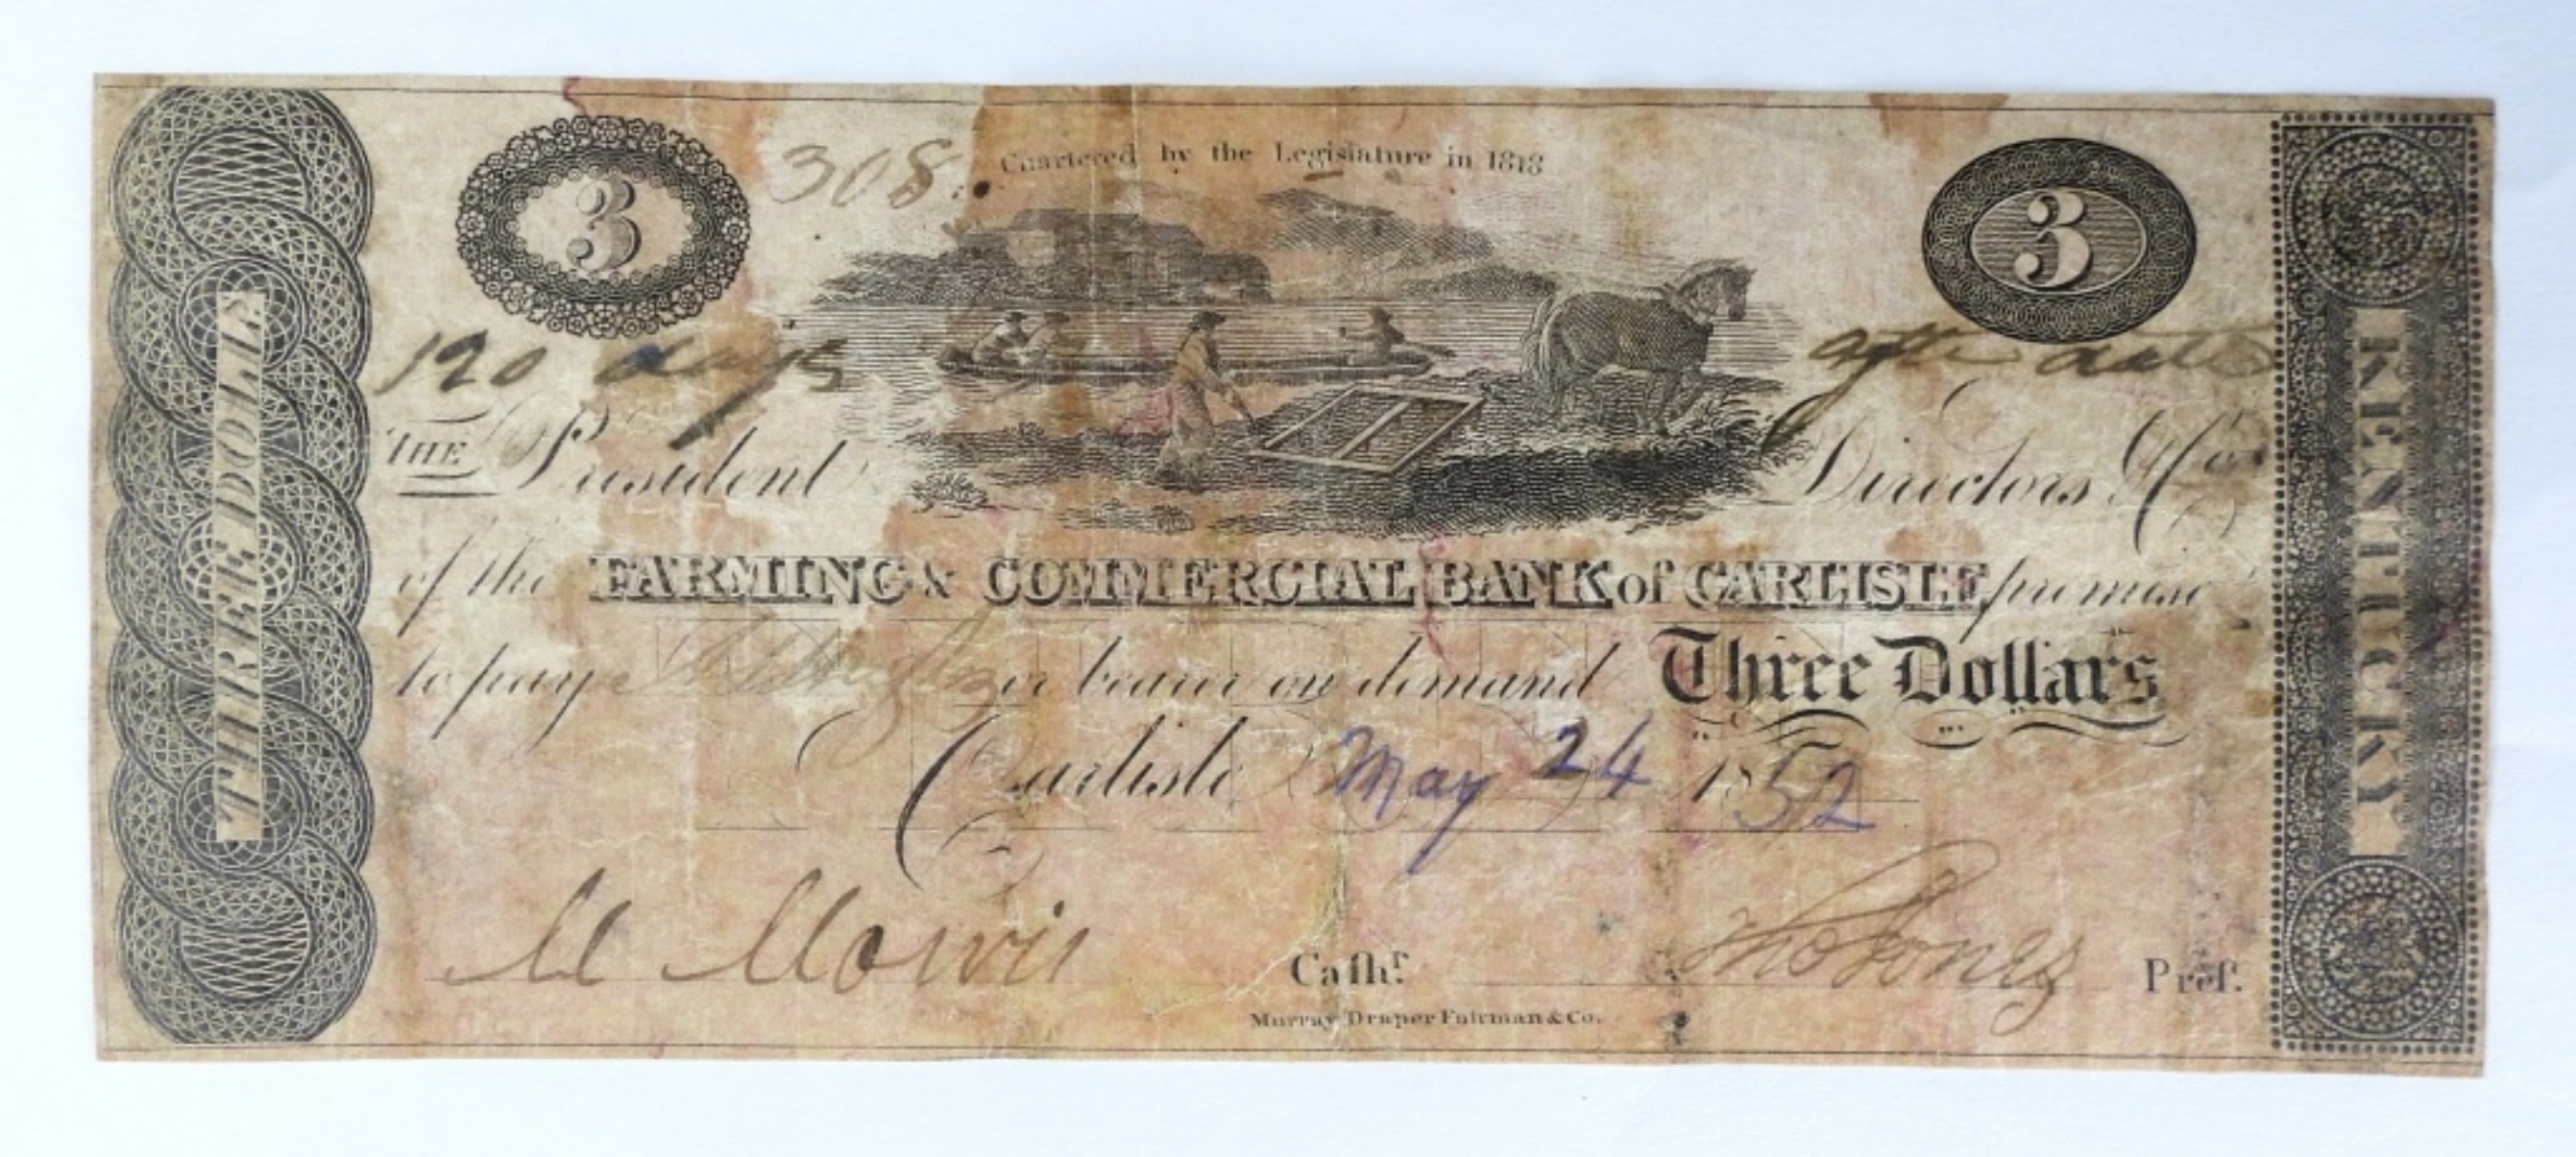 Chartered by the Legislature in 1818
3
308
3
120 days after date
THE President Directors & Co
of the FARMING & COMMERCIAL BANK of CARLISLE promise
to pay or bearer on demand Three Dollars
Carlisle May 24 1852
Cashr. Prest.
Murray Draper Fairman & Co.
THREE DOLLS
KENTUCKY